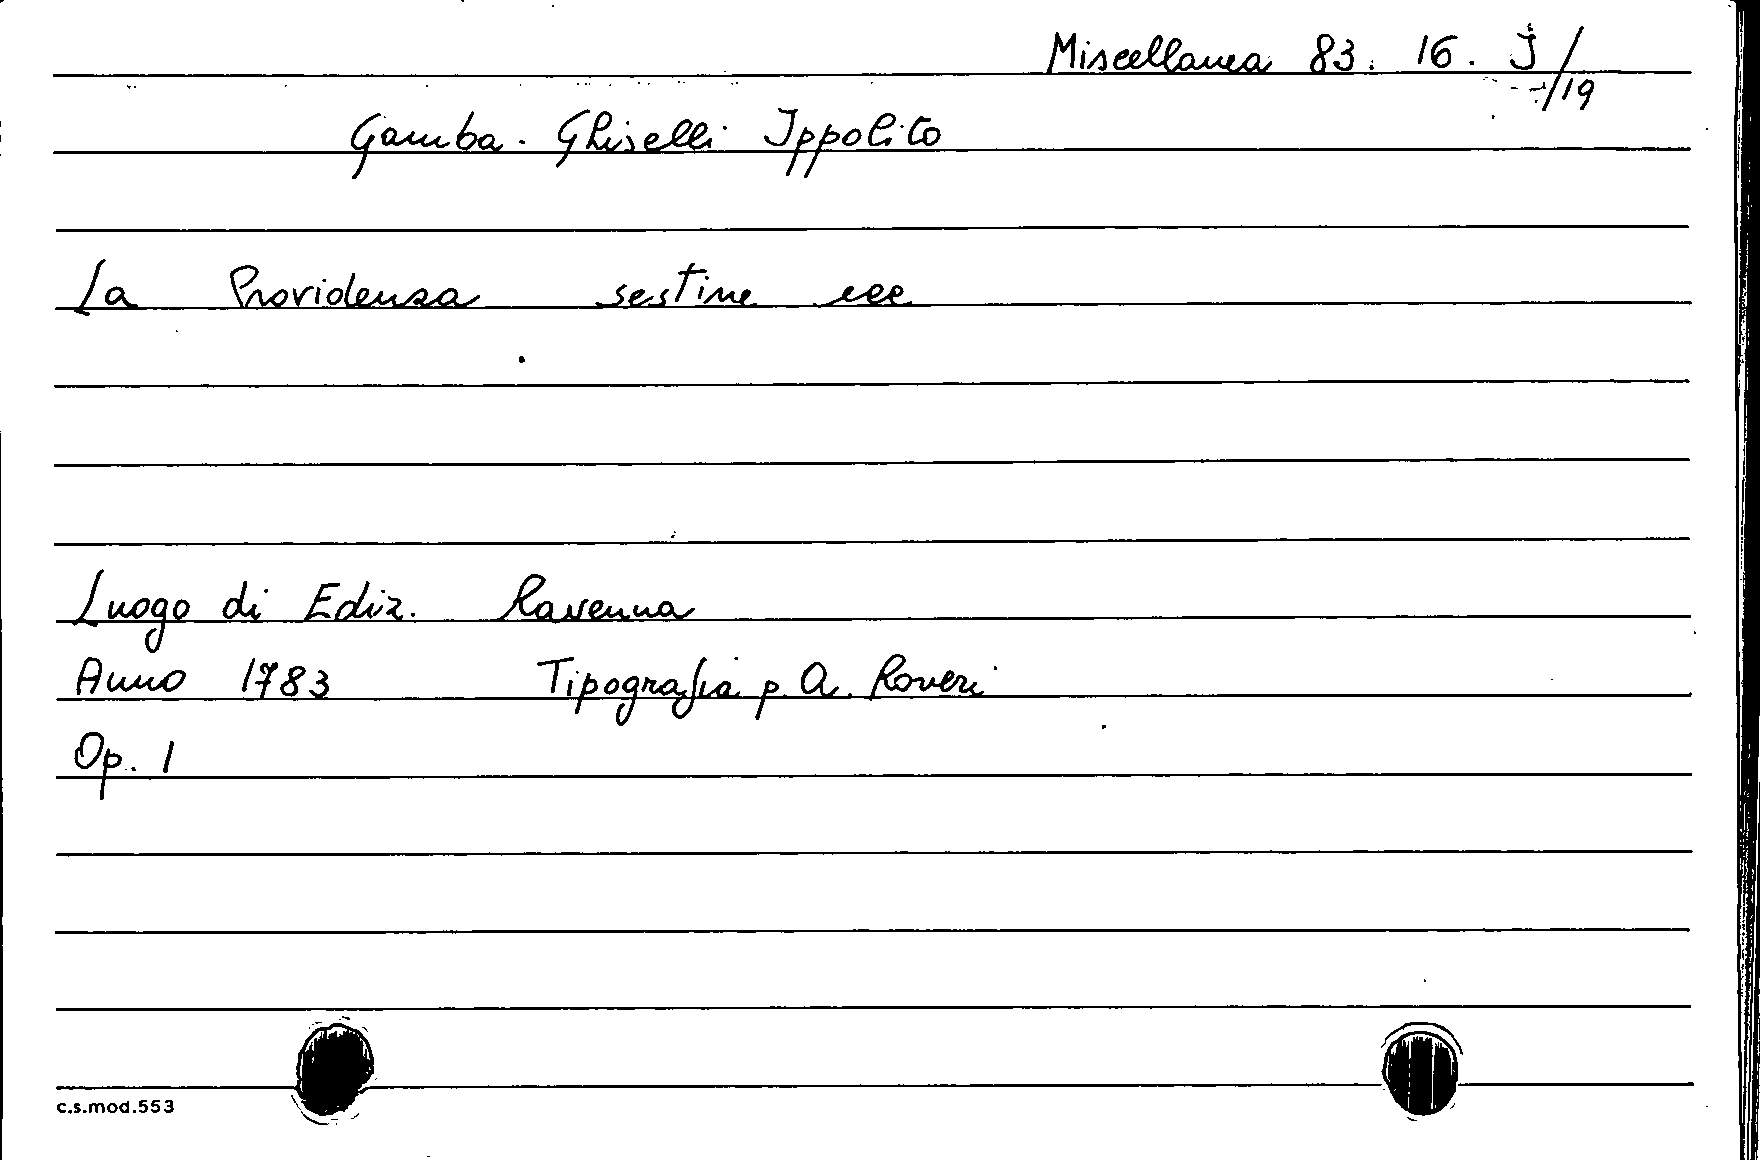 Miscellanea 83. 16. J/
/19
Gamba. Ghiselli Ippolito
La Providenza sestine ecc
Luogo di Ediz. Ravenna
Anno 1783 Tipografia p. A. Roveri
Op. 1
c.s.mod.553